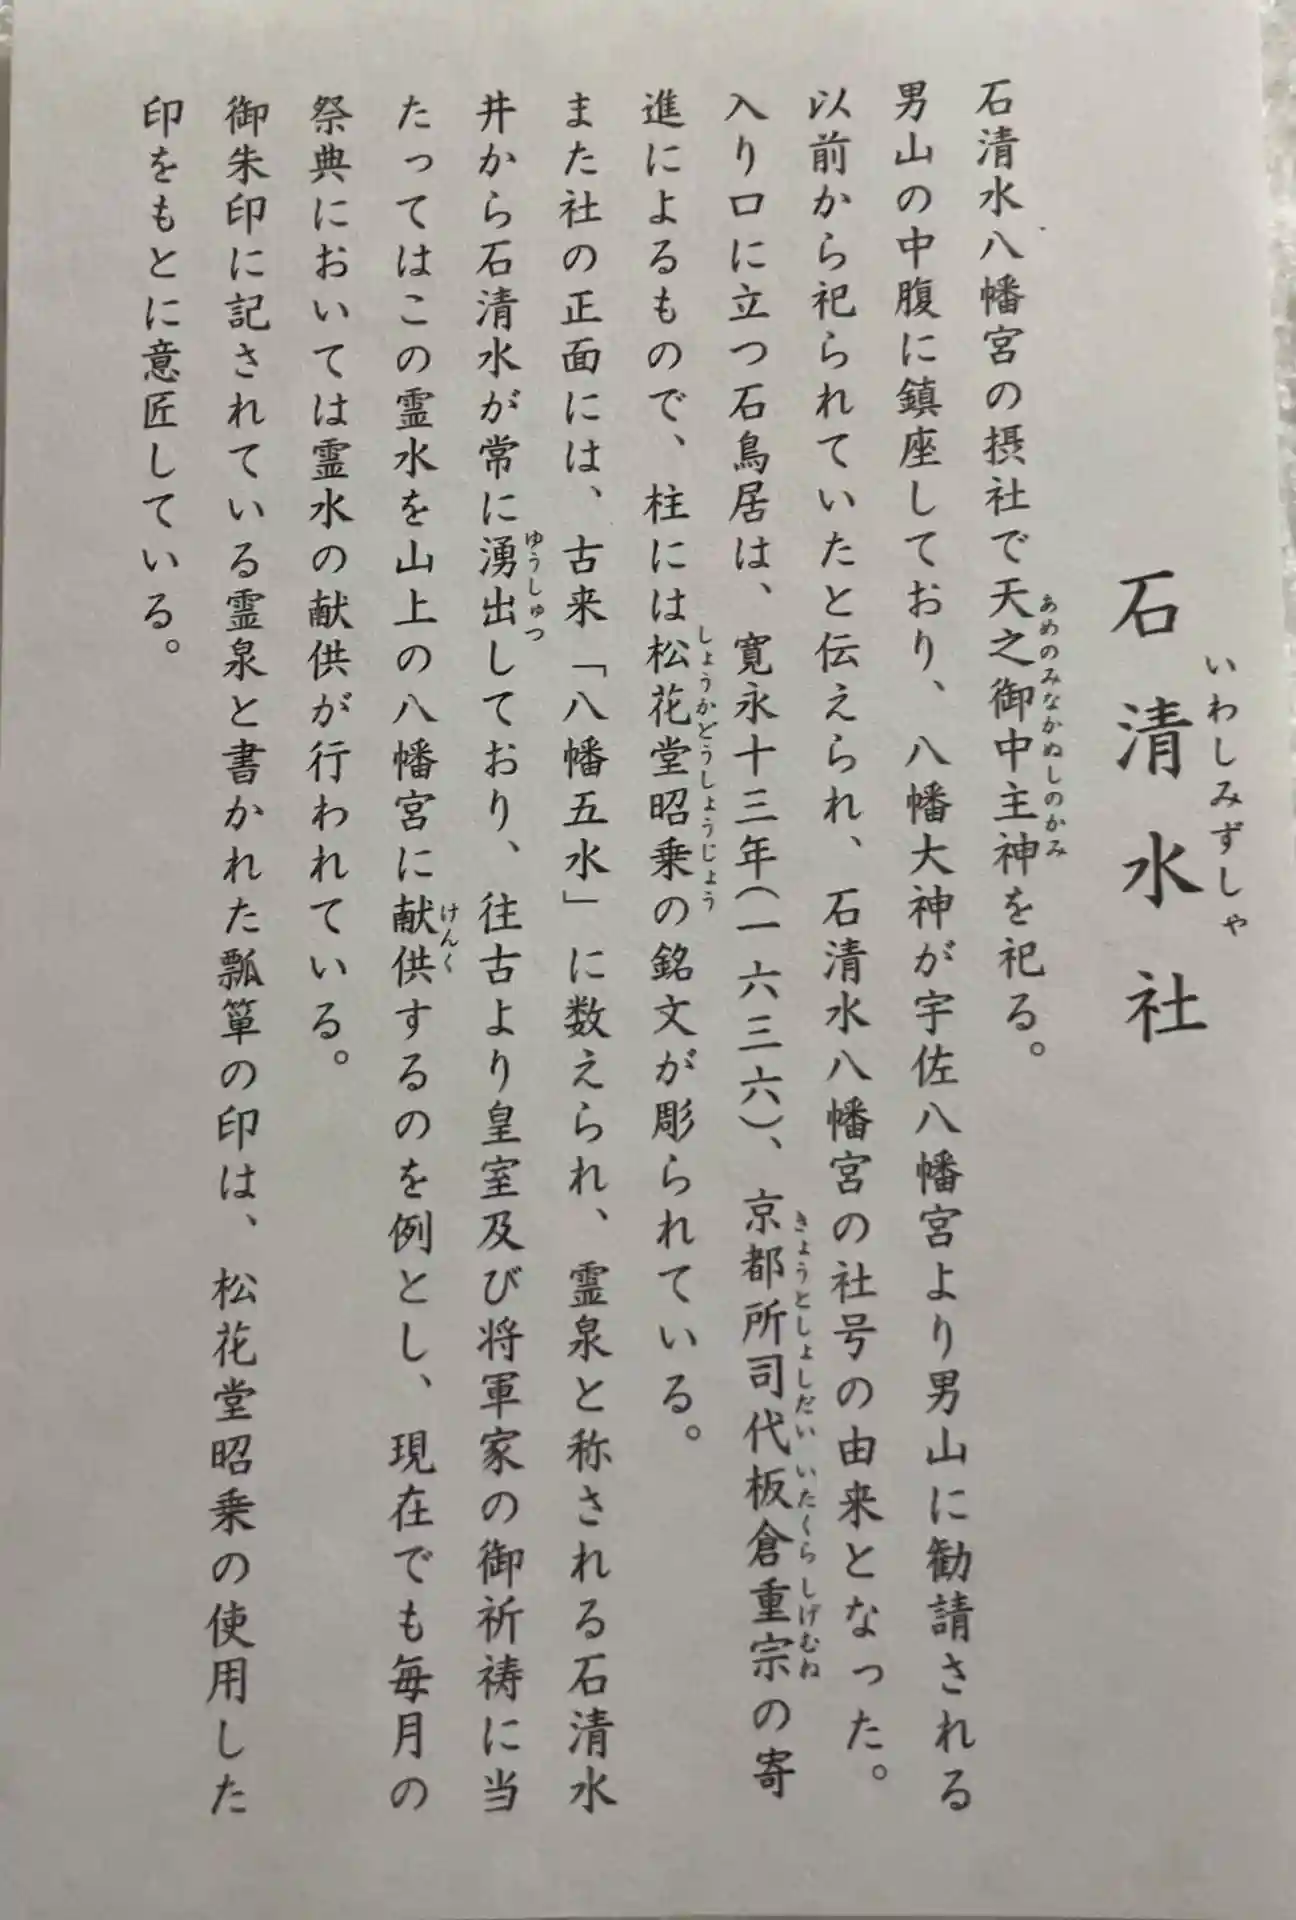 石清水社
いわしみずしゃ
石清水八幡宮の摂社で天之御中主神を祀る。
あめのみなかぬしのかみ
男山の中腹に鎮座しており、八幡大神が宇佐八幡宮より男山に勧請される
以前から祀られていたと伝えられ、石清水八幡宮の社号の由来となった。
入り口に立つ石鳥居は、寛永十三年(一六三六)、京都所司代板倉重宗の寄
きょうとしょしだい いたくらしげむね
進によるもので、柱には松花堂昭乗の銘文が彫られている。
しょうかどうしょうじょう
また社の正面には、古来「八幡五水」に数えられ、霊泉と称される石清水
井から石清水が常に湧出しており、往古より皇室及び将軍家の御祈祷に当
ゆうしゅつ
たってはこの霊水を山上の八幡宮に献供するのを例とし、現在でも毎月の
けんく
祭典においては霊水の献供が行われている。
御朱印に記されている霊泉と書かれた瓢箪の印は、松花堂昭乗の使用した
印をもとに意匠している。